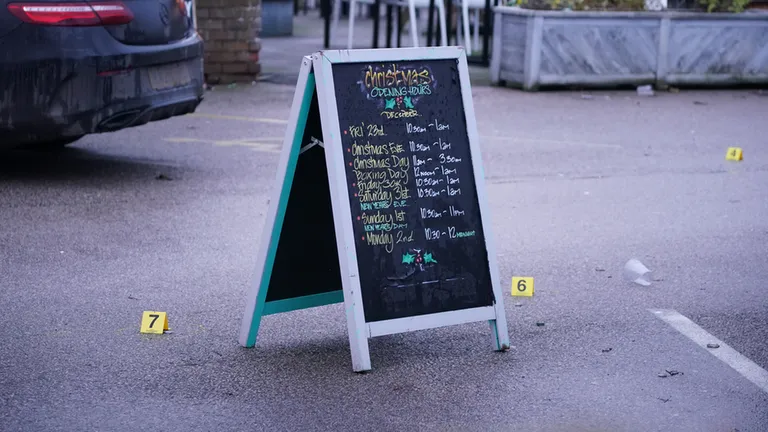 christmas
OPENING HOURS
DECEMBER
FRI 23rd 10:30am - 1am
Christmas Eve 10:30am - 1am
Christmas Day 11am - 3:30
Boxing Day 12noon - 1am
Friday 30th 10:30am - 1am
Saturday 31st 10:30am - 1am
NEW YEARS EVE
Sunday 1st 10:30am - 11pm
NEW YEARS DAY
Monday 2nd 10:30 - 12 MIDNIGHT
4
6
7